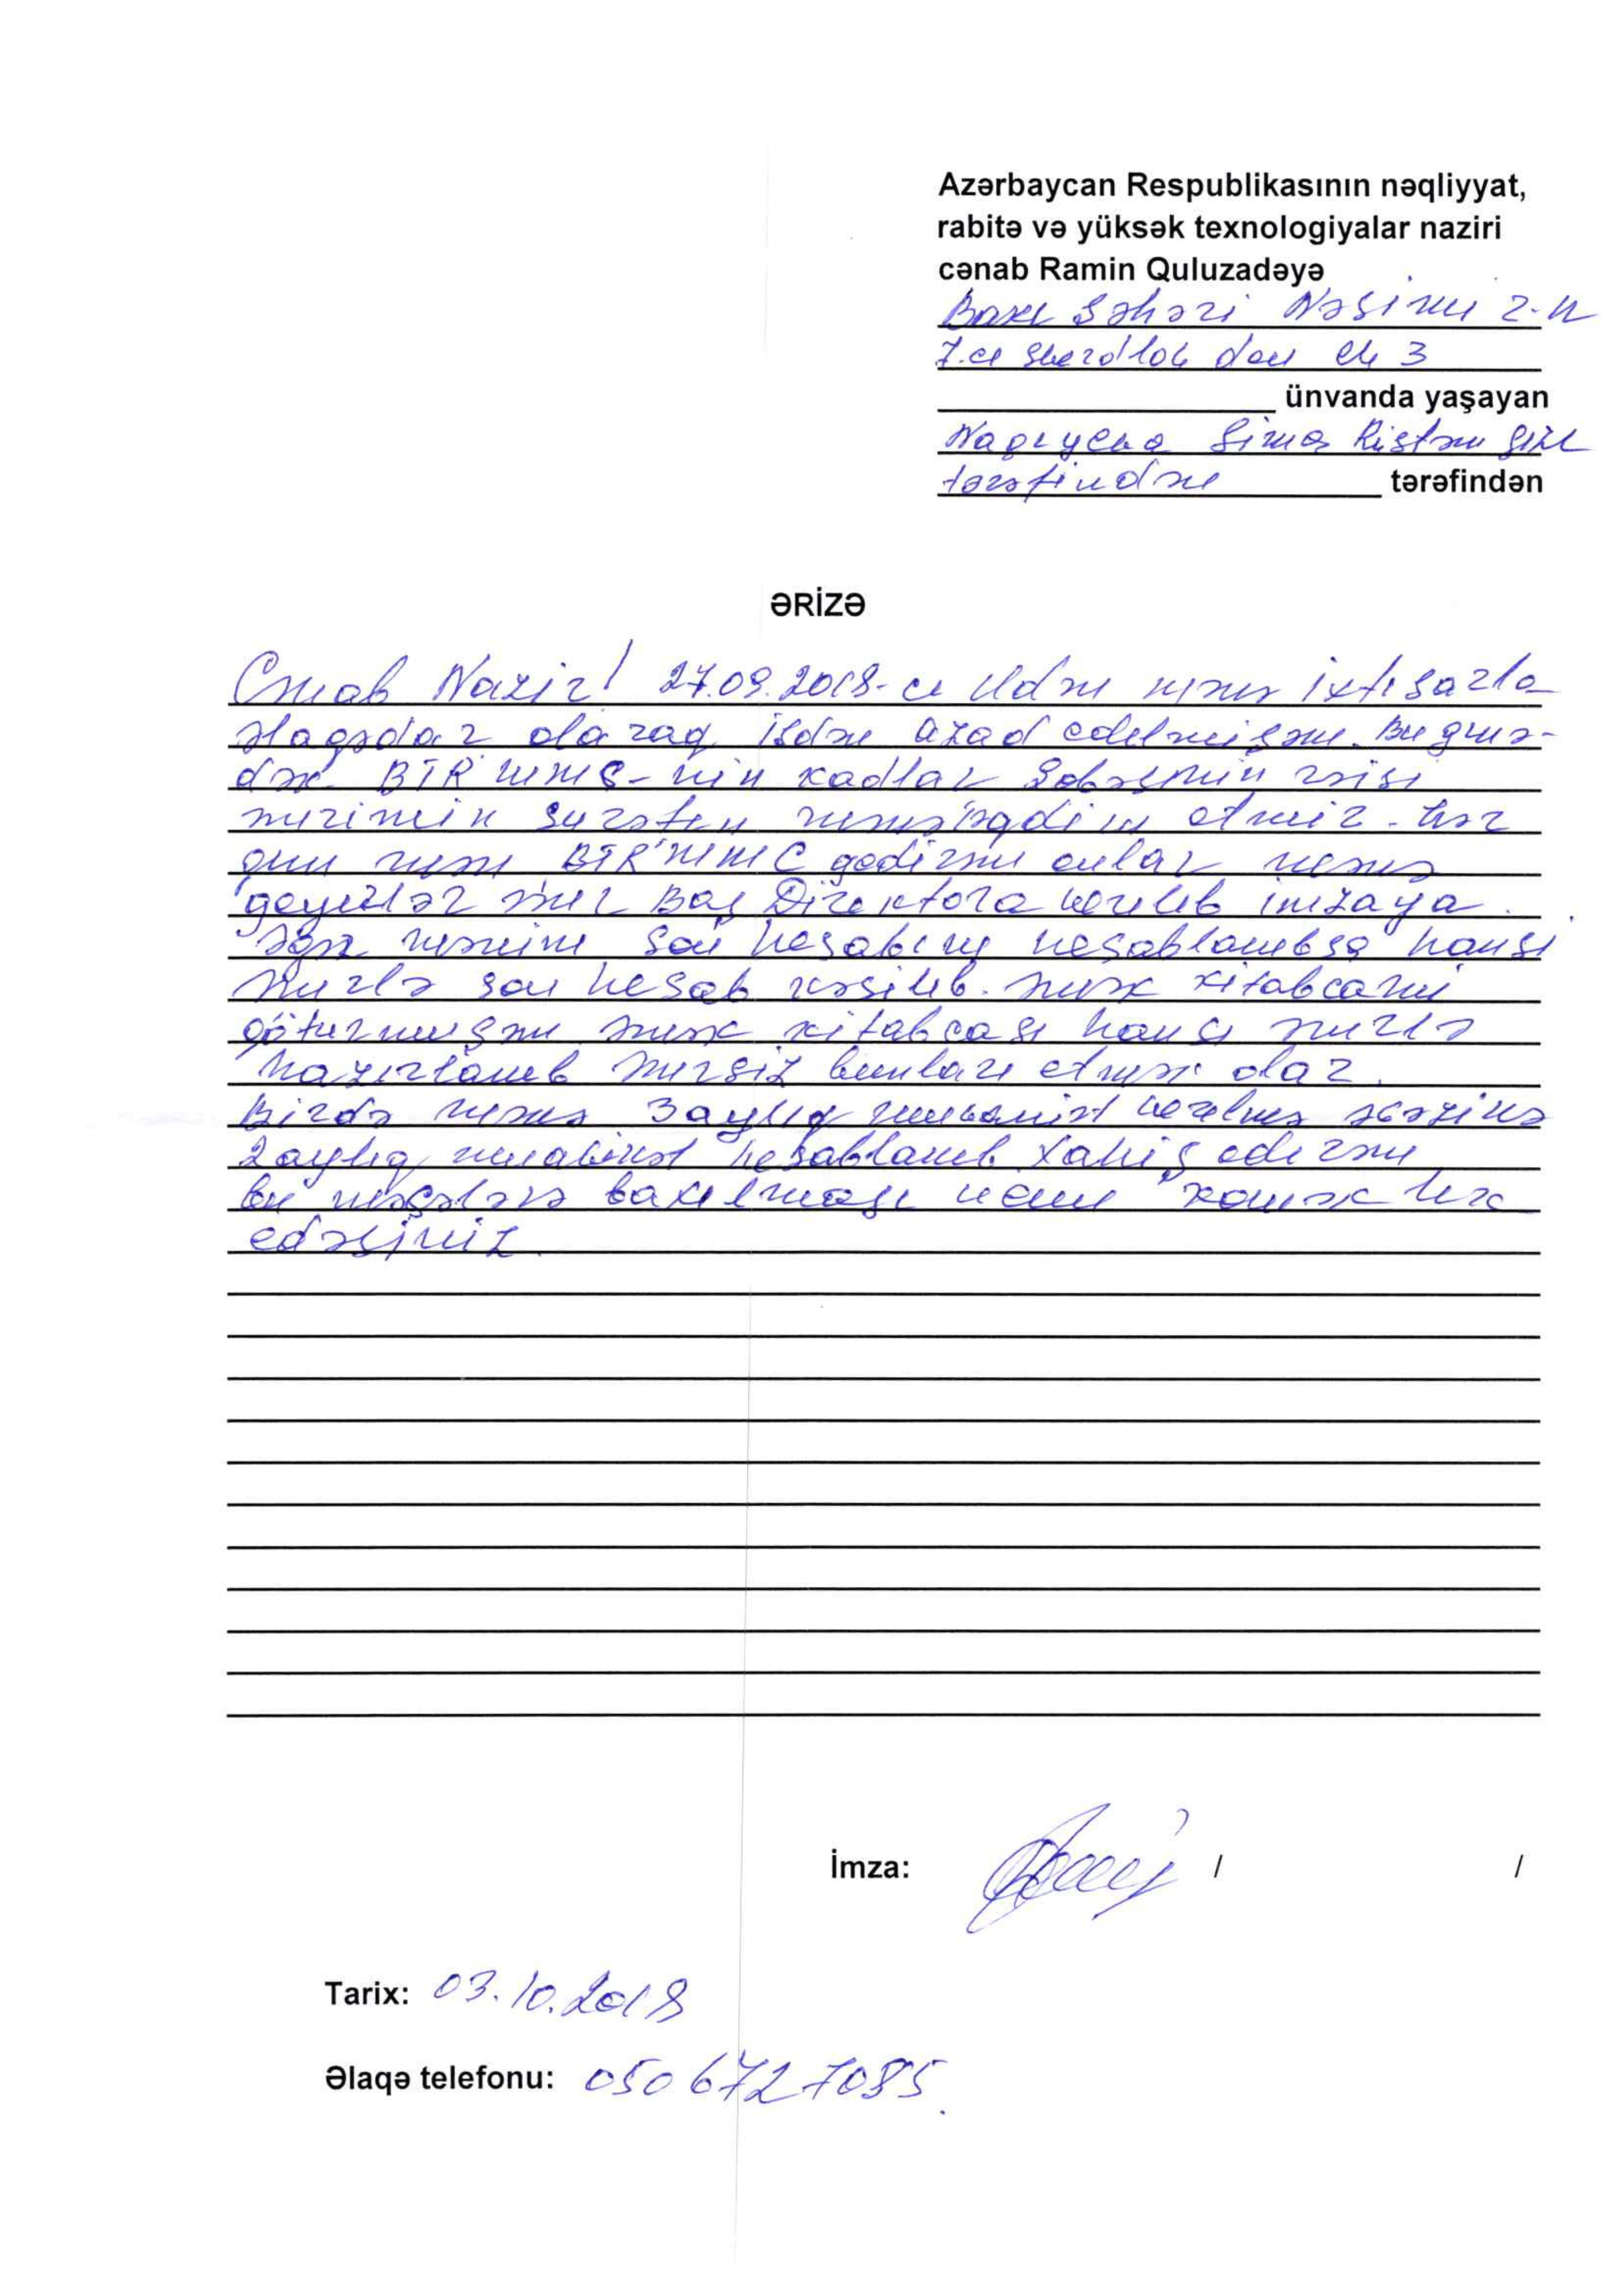 Azərbaycan Respublikasının nəqliyyat,
rabitə və yüksək texnologiyalar naziri
cənab Ramin Quluzadəyə
Bakı Şəhəri Nəsimi r-n
7.ci
ünvanda yaşayan
Nağıyeva Sima Rüstəm qızı
tərəfindən tərəfindən
ƏRİZƏ
Cənab Nazir! 27.09.2018-ci ildən mənə ixtisarla
əlaqədar olaraq işdən azad edilmişəm. Bu günə-
dək BTR'MMC-nin kadlar şöbəsinin rəisi
əmrimin surətin mənə təqdim etmir. hər
gün mən BTR'MMC gedirəm onlar mənə
deyirlər əmr Baş Direktora verilib imzaya.
Əgər mənim son hesabım hesablanıbsa hansı
əmrlə son hesab kəsilib. Əmək kitabcamı
götürmüşəm əmək kitabcası hansı əmrlə
hazırlanıb əmrsiz bunları etmək olar.
Birdə mənə 3 aylıq müavinət verilmə əvəzinə
2 aylıq müavinət hesablanıb. Xahiş edirəm
bu məsələyə baxılması üçün köməklik
edəsiniz.
İmza: / /
Tarix: 03.10.2018
Əlaqə telefonu: 050 672 7085.